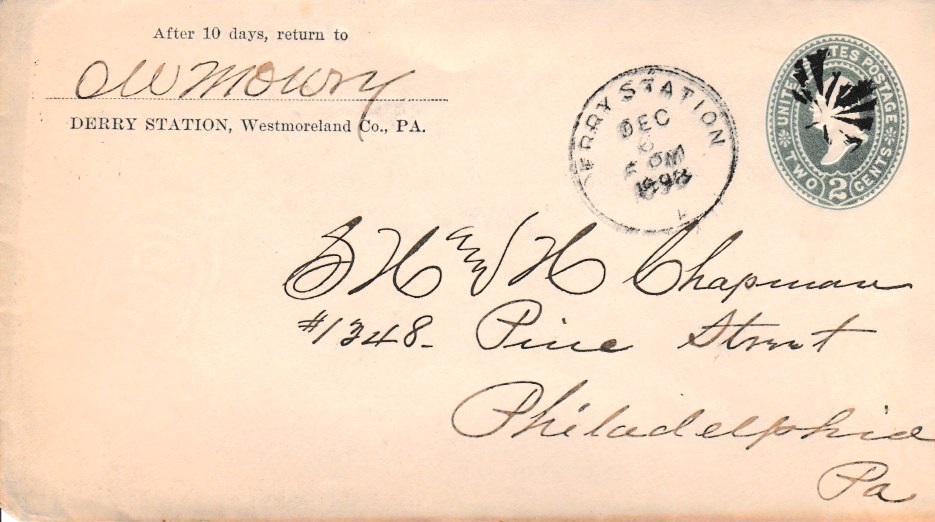 After 10 days, return to
O W Mowry
DERRY STATION, Westmoreland Co., PA.
DERRY STATION
DEC
6 PM
1893
UNITED STATES POSTAGE
TWO 2 CENTS
S H and H Chapman
#1348- Pine Street
Philadelphia
Pa